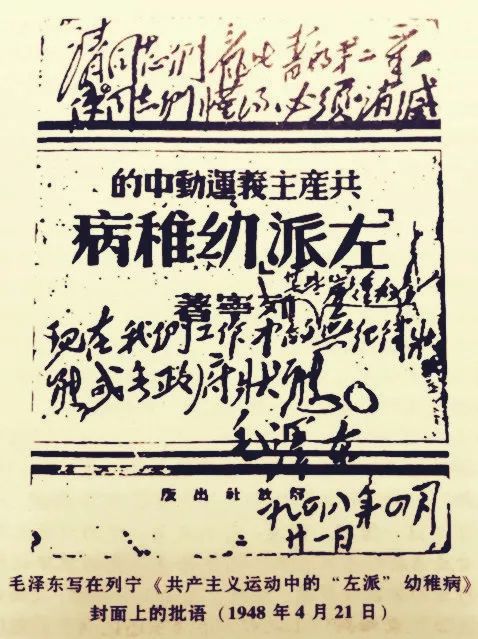 请同志们看此書的第二章
使同志们懂得，必须消滅
共產主義運動中的
「左派」幼稚病
列寧著
某些嚴重的
现在我们工作中的無纪律狀
態或無政府狀態。
毛澤东
解放社出版
一九四八年四月
廿一日
毛泽东写在列宁《共产主义运动中的“左派”幼稚病》
封面上的批语（1948年4月21日）